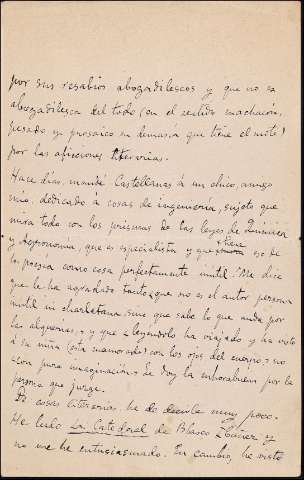 por sus resabios abogadilescos y que no sea
abogadilesca del todo (en el sentido machacón,
pesado y prosaico en demasía que tiene el mote)
por las aficiones literarias.
Hace días, mandé Castellanas á un chico, amigo
mío, dedicado á cosas de ingeniería, sujeto que
mira todo con los prismas de las leyes de Química
y Agronomía, que es especialista y que tiene eso de
la poesía como cosa perfectamente inútil. Me dice
que le ha agradado tanto, que no es el autor persona
inútil ni charlatana, sino que sabe lo que anda por
las alquerías, y que leyéndolo ha viajado y ha visto
á su niña (está enamorado) con los ojos del cuerpo, no
con pura imaginación. Le doy la enhorabuena por la
persona que juzga.
De cosas literarias he de decirle muy poco.
He leído La Catedral de Blasco Ibáñez y
no me ha entusiasmado. En cambio, he visto